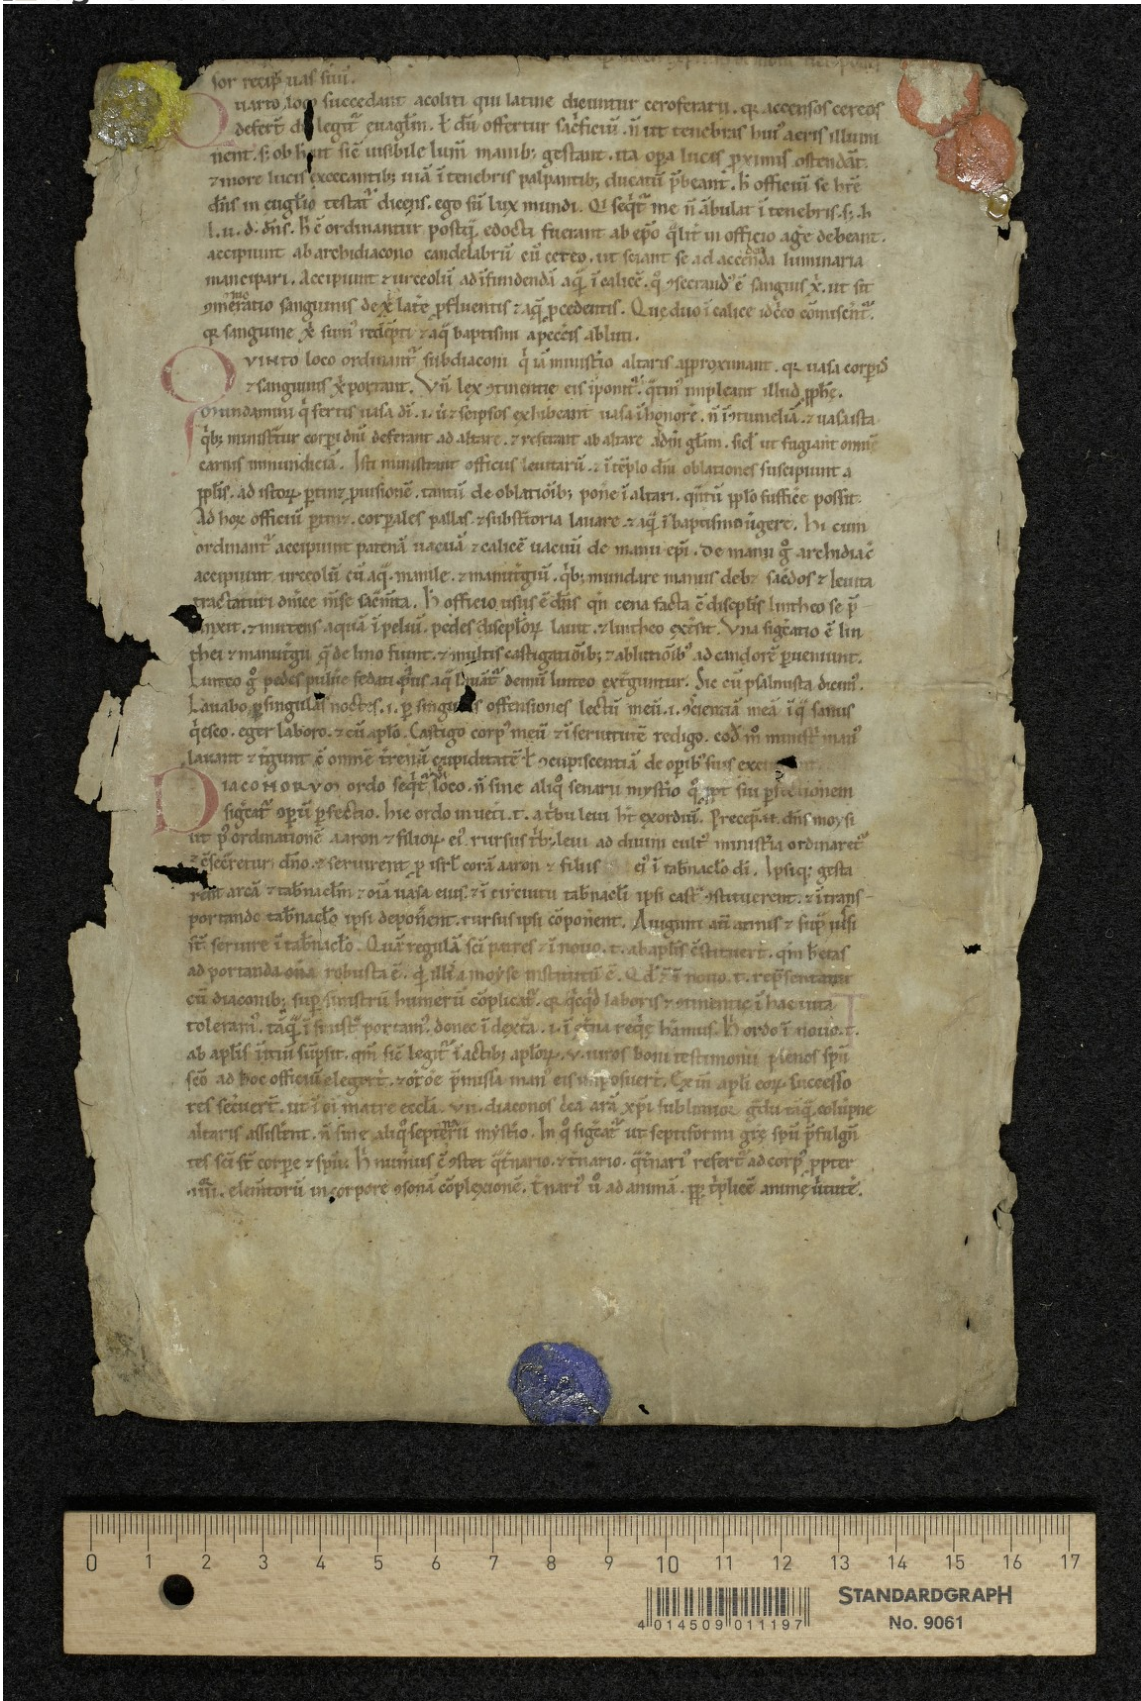 sor recip uas suū.
uarto loco succedant acoliti qui latine dicuntur ceroferarii. qꝛ accensos cereos
deferūt dū legit᷑ euagl̄m. ł dū offertur sac̄ficiū. n̄ ut tenebras hui᷒ aeris illumi
nent. s; ob hoc ut sic̄ uisibile lum̄ manib; gestant. ita opa lucis proximis ostendāt.
⁊ more lucis excecantib; uiā ī tenebris palpantib; ducatū p̄beant. h̄ officiū se hr̄e
dn̄s in euglīo testat᷑ dicens. ego sū lux mundi. Qi seqt᷑ me n̄ ābulat ī tenebris. s; h
l. u. d. dn̄s. h̄ ē ordinantur postq̄ edocti fuerant ab ep̄o qͥlit̄ in officio age debeant.
accipiunt ab archidiacono candelabrū cū cereo. ut sciant se ad accenda luminaria
mancipari. Accipiunt ⁊ urceolū ad īfundendā aq̄ ī calicē. qͦ ꝯsecrand᷒ ē sanguis xͥ. ut sit
ꝯmeratio sanguinis de xͥ late᷑ p̄fluentis ⁊ aq̄ p̄cedentis. Que duo ī calice idcͥco cōmiscent᷑.
qꝛ sanguine xͥ sum᷒ redēpti ⁊ aq̄ baptismi a peccͥis abluti.
QVINTO loco ordinant᷑ subdiaconi qͥ iā ministͥo altaris approximant. qꝛ uasa corpis
⁊ sanguinis xͥ portant. Vn̄ lex ꝯtinentie eis īponit᷑. qͣtin᷒ impleant illud pph̄e.
Mundamini qͥ fertis uasa dī. .i. ū ⁊ seipsos exhibeant uasa ī honorē. n̄ ī ꝯtumeliā. ⁊ uasa ista
qͥb; ministrat᷑ corpi dn̄i deferant ad altare. ⁊ referant ab altare ad gl̄m. sicł ut fugiant omnē
carnis inmundiciā. Isti ministrant officiis leuitarū. ⁊ ī tēplo dn̄i oblationes suscipiunt a
pplis. ad istoꝝ ptinꝫ puisionē. tantū de oblatiōib; pone ī altari. qͣntū pplo suffice possit.
Ad hoꝝ officiū ptinꝫ. corpales pallas. ⁊ substͣtoria lauare. ⁊ aq̄ ī baptismo īgere. hi cum
ordinant᷑ accipiunt patenā uacuā ⁊ calicē uacuū de manu epi. De manu gͦ archidiac̄
accipiunt urceolū cū aq̄. manile. ⁊ manutgiū. qͥb; mundare manus debꝫ sac̄dos ⁊ leuita
tractaturi dn̄ice m̄se sac̄m̄ta. h̄ officio usus ē dn̄s qn̄ cena facta ē discipl̄is lintheo se p̄
cinxit. ⁊ mittens aquā ī peluī. pedes discipl̄oꝝ lauit. ⁊ lintheo extͥsit. Vna sigͣcatio ē lin
thei ⁊ manutgii q̄ de lino fiunt. ⁊ multis castigatiōib; ⁊ ablutiōib᷒ ad candorē pueniunt.
Linteo gͦ pedes puluē fedati qͥ᷒ aq̄ lauāt᷑ demū linteo extguntur. Sic cū psalmista dicim᷒.
Lauabo p singulas noctes. .i. p singulas offensiones lectū meū. .i. ꝯscientiā meā ī q̄ sanus
qͥesco. eger laboro. ⁊ cū aplo. Castigo corp᷒ meū ⁊ ī seruitutē redigo. eod̄ mͦ ministͥ man᷒
lauant ⁊ tgunt ē omnē trenā cupiditatē ł ꝯcupiscentiā de opib᷒ suis
DIACONORVM ordo seqt᷑ loco. n̄ sine aliqͦ senarii mystͥo qͦ ppt sui pfectionem
sigͣcat᷑ opū pfectio. hic ordo in ueti. t. a tͥbu leui hͫt exordiū. Precep. n. dn̄s moysi
ut pͥ ordinationē aaron ⁊ filioꝝ ei᷒ rursus tͥb; leui ad diuini cult᷒ ministͥa ordinaret᷑
⁊ ꝯsecͣretur dn̄o. ⁊ seruirent p isrl̄ corā aaron ⁊ filiis ei᷒ ī tabn̄acło dī. Ipsiq; gesta
rent arcā ⁊ tabn̄acłm ⁊ oīa uasa eius. ⁊ ī circuitu tabn̄acłi ipsi castͣ ꝯstituerent. ⁊ ī trans
portando tabn̄acło ipsi deponent. rursus ipsi cōponent. A uiginti aū annis ⁊ supͣ iussi
st̄ seruire ī tabn̄acło. Quā regulā sci patres ⁊ ī nouo. t. ab aplis ꝯstituert. qm̄ h̄ etas
ad portanda onͥa robusta ē. qͥ illi a moyse institutū ē. Qd̄ ⁊ ī nouo. t. rep̄sentant
cū diaconib; sup sinistrū humerū cōplicat᷑. qꝛ qͥcqͥd laboris ⁊ ꝯtinentię ī hac uita
toleram᷒. tāq̄ ī sinistͣ portam᷒. donec ī dextͣa. .i. ī et̄na reqͥe habeamus. h̄ ordo ī nouo. t.
ab aplis īitiū sūpsit. qm̄ sic̄ legit᷑ ī actib; aploꝝ. VII. uiros boni testimonii plenos spū
scō ad hoc officiū elegert. ⁊ orōe p̄missa man᷒ eis inposuert. Exin apli coꝝ successo
res secuti. ut ī oī matre ecclā. VII. diaconos cͥca arā xp̄i sublimior gͣdu tāq̄ colūpne
altaris assisterent. n̄ sine aliqͦ septenarii mystͥo. In qͦ sigͣcat᷑ ut septiformi gͣtię spū p̄fulgn̄
tes sci st̄ corpe ⁊ spū. h̄ num̄us ē ꝯstet qͣtͣnario. ⁊ tͣnario. qͣtͣnari᷒ refert᷑ ad corp᷒ ppter
.iiii. elem̄torū in corpore ꝯsonā cōplexionē. tͣnari᷒ ūͦ ad animā. pp tͥplicē animę ūtutē.
0 1 2 3 4 5 6 7 8 9 10 11 12 13 14 15 16 17
4 014509 011197
STANDARDGRAPH
No. 9061